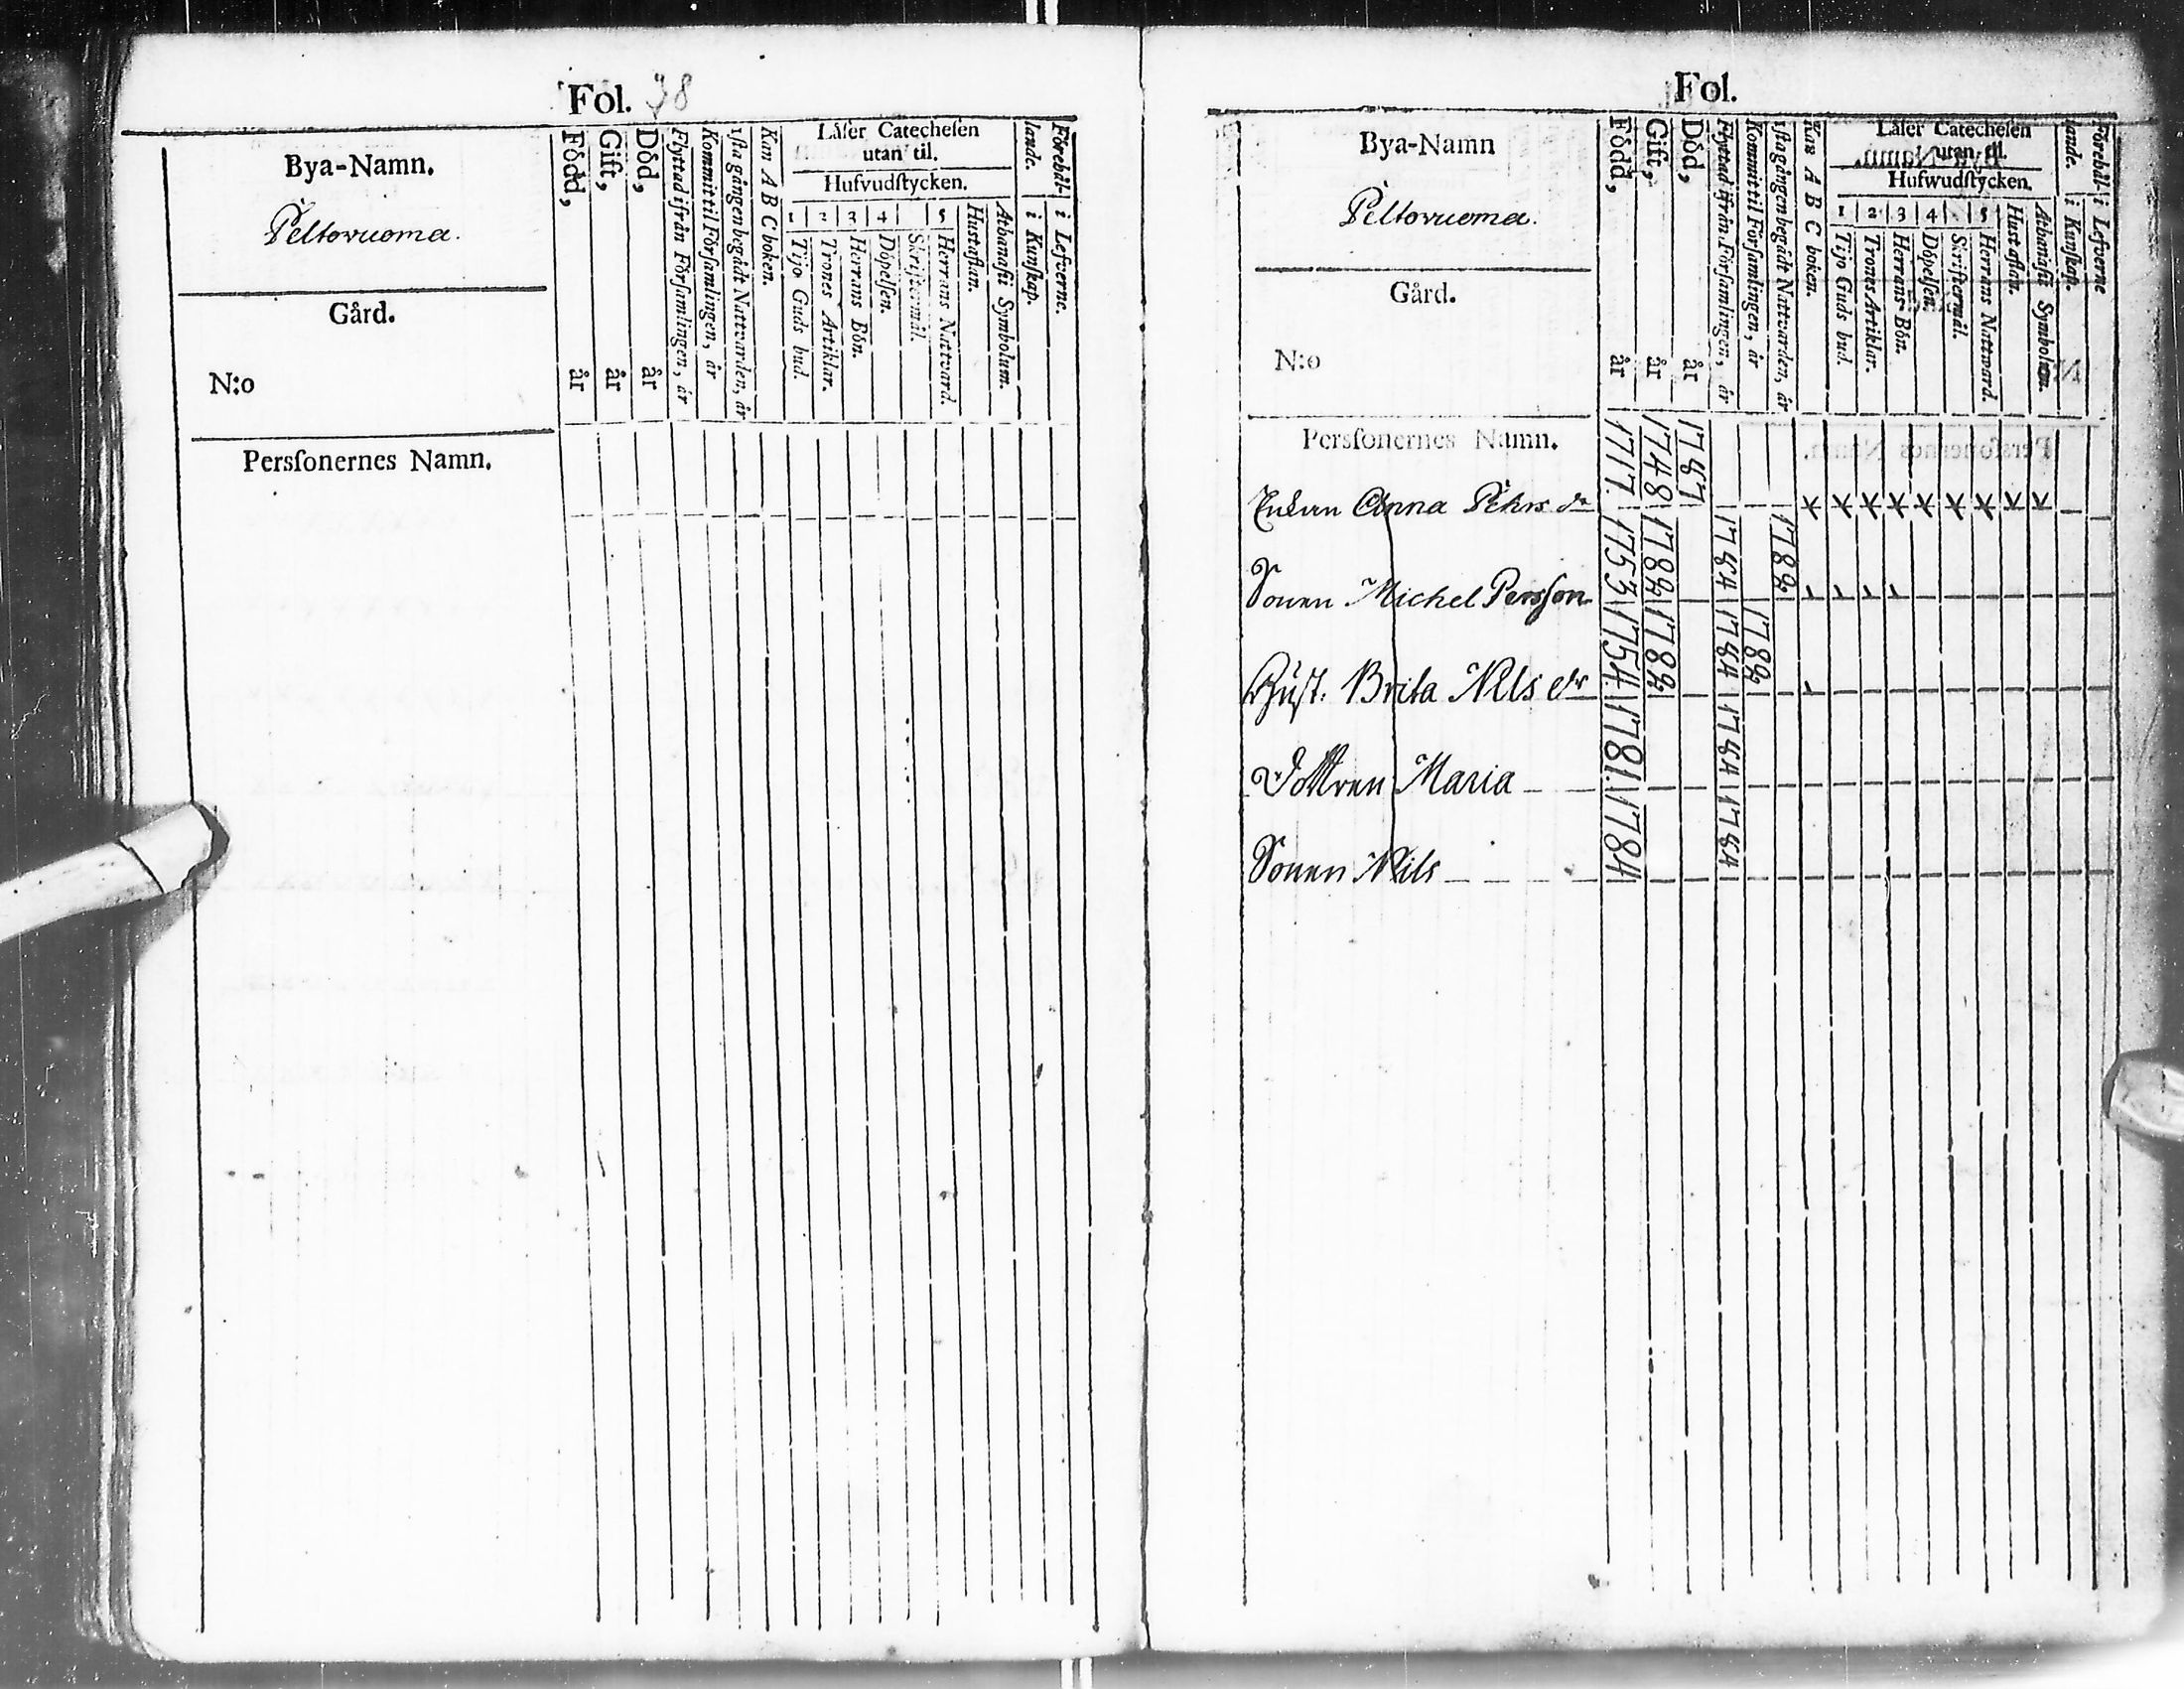 Fol. 38
Bya-Namn.
Peltovuoma.
Gård.
N:o
Persſonernes Namn.
Född, år
Gift, år
Död, år
Flyttad ifrån Förſamlingen, år
Kommit til Förſamlingen, år
1ſta gången begådt Nattvarden, år
Kan A B C boken.
Låſer Catecheſen
utan til.
Hufvudſtycken.
1 2 3 4 5
Tijo Guds bud.
Trones Artiklar.
Herrans Bön.
Döpelſen.
Skriftermål.
Herrans Nattvard.
Huſtaflan.
Athanaſii Symbolum.
Förehål-
lande.
i Kunſkap.
i Lefverne.
Fol.
Bya-Namn
Peltovuoma.
Gård.
N:o
Persſonernes Namn.
Född, år
Gift, år
Död, år
Flyttad ifrån Förſamlingen, år
Kommit til Förſamlingen, år
1ſta gången begådt Nattvarden, år
Kan A B C boken.
Låſer Catecheſen
utan til.
Hufwudſtycken.
1 2 3 4 5
Tijo Guds bud.
Trones Artiklar.
Herrans Bön.
Döpelſen.
Skriftermål.
Herrans Nattvard.
Huſtaflan.
Athanaſii Symbolum.
Förehål-
lande.
i Kunſkap.
i Lefverne
Enkan Anna Pehrs dr 1717. 1748 1787
Sonen Michel Persſon 1753 1782 1784 1782
Huſt. Brita Nils dr 1754 1782 1784 1782
Dottren Maria 1781. 1784
Sonen Nils 1784 1784